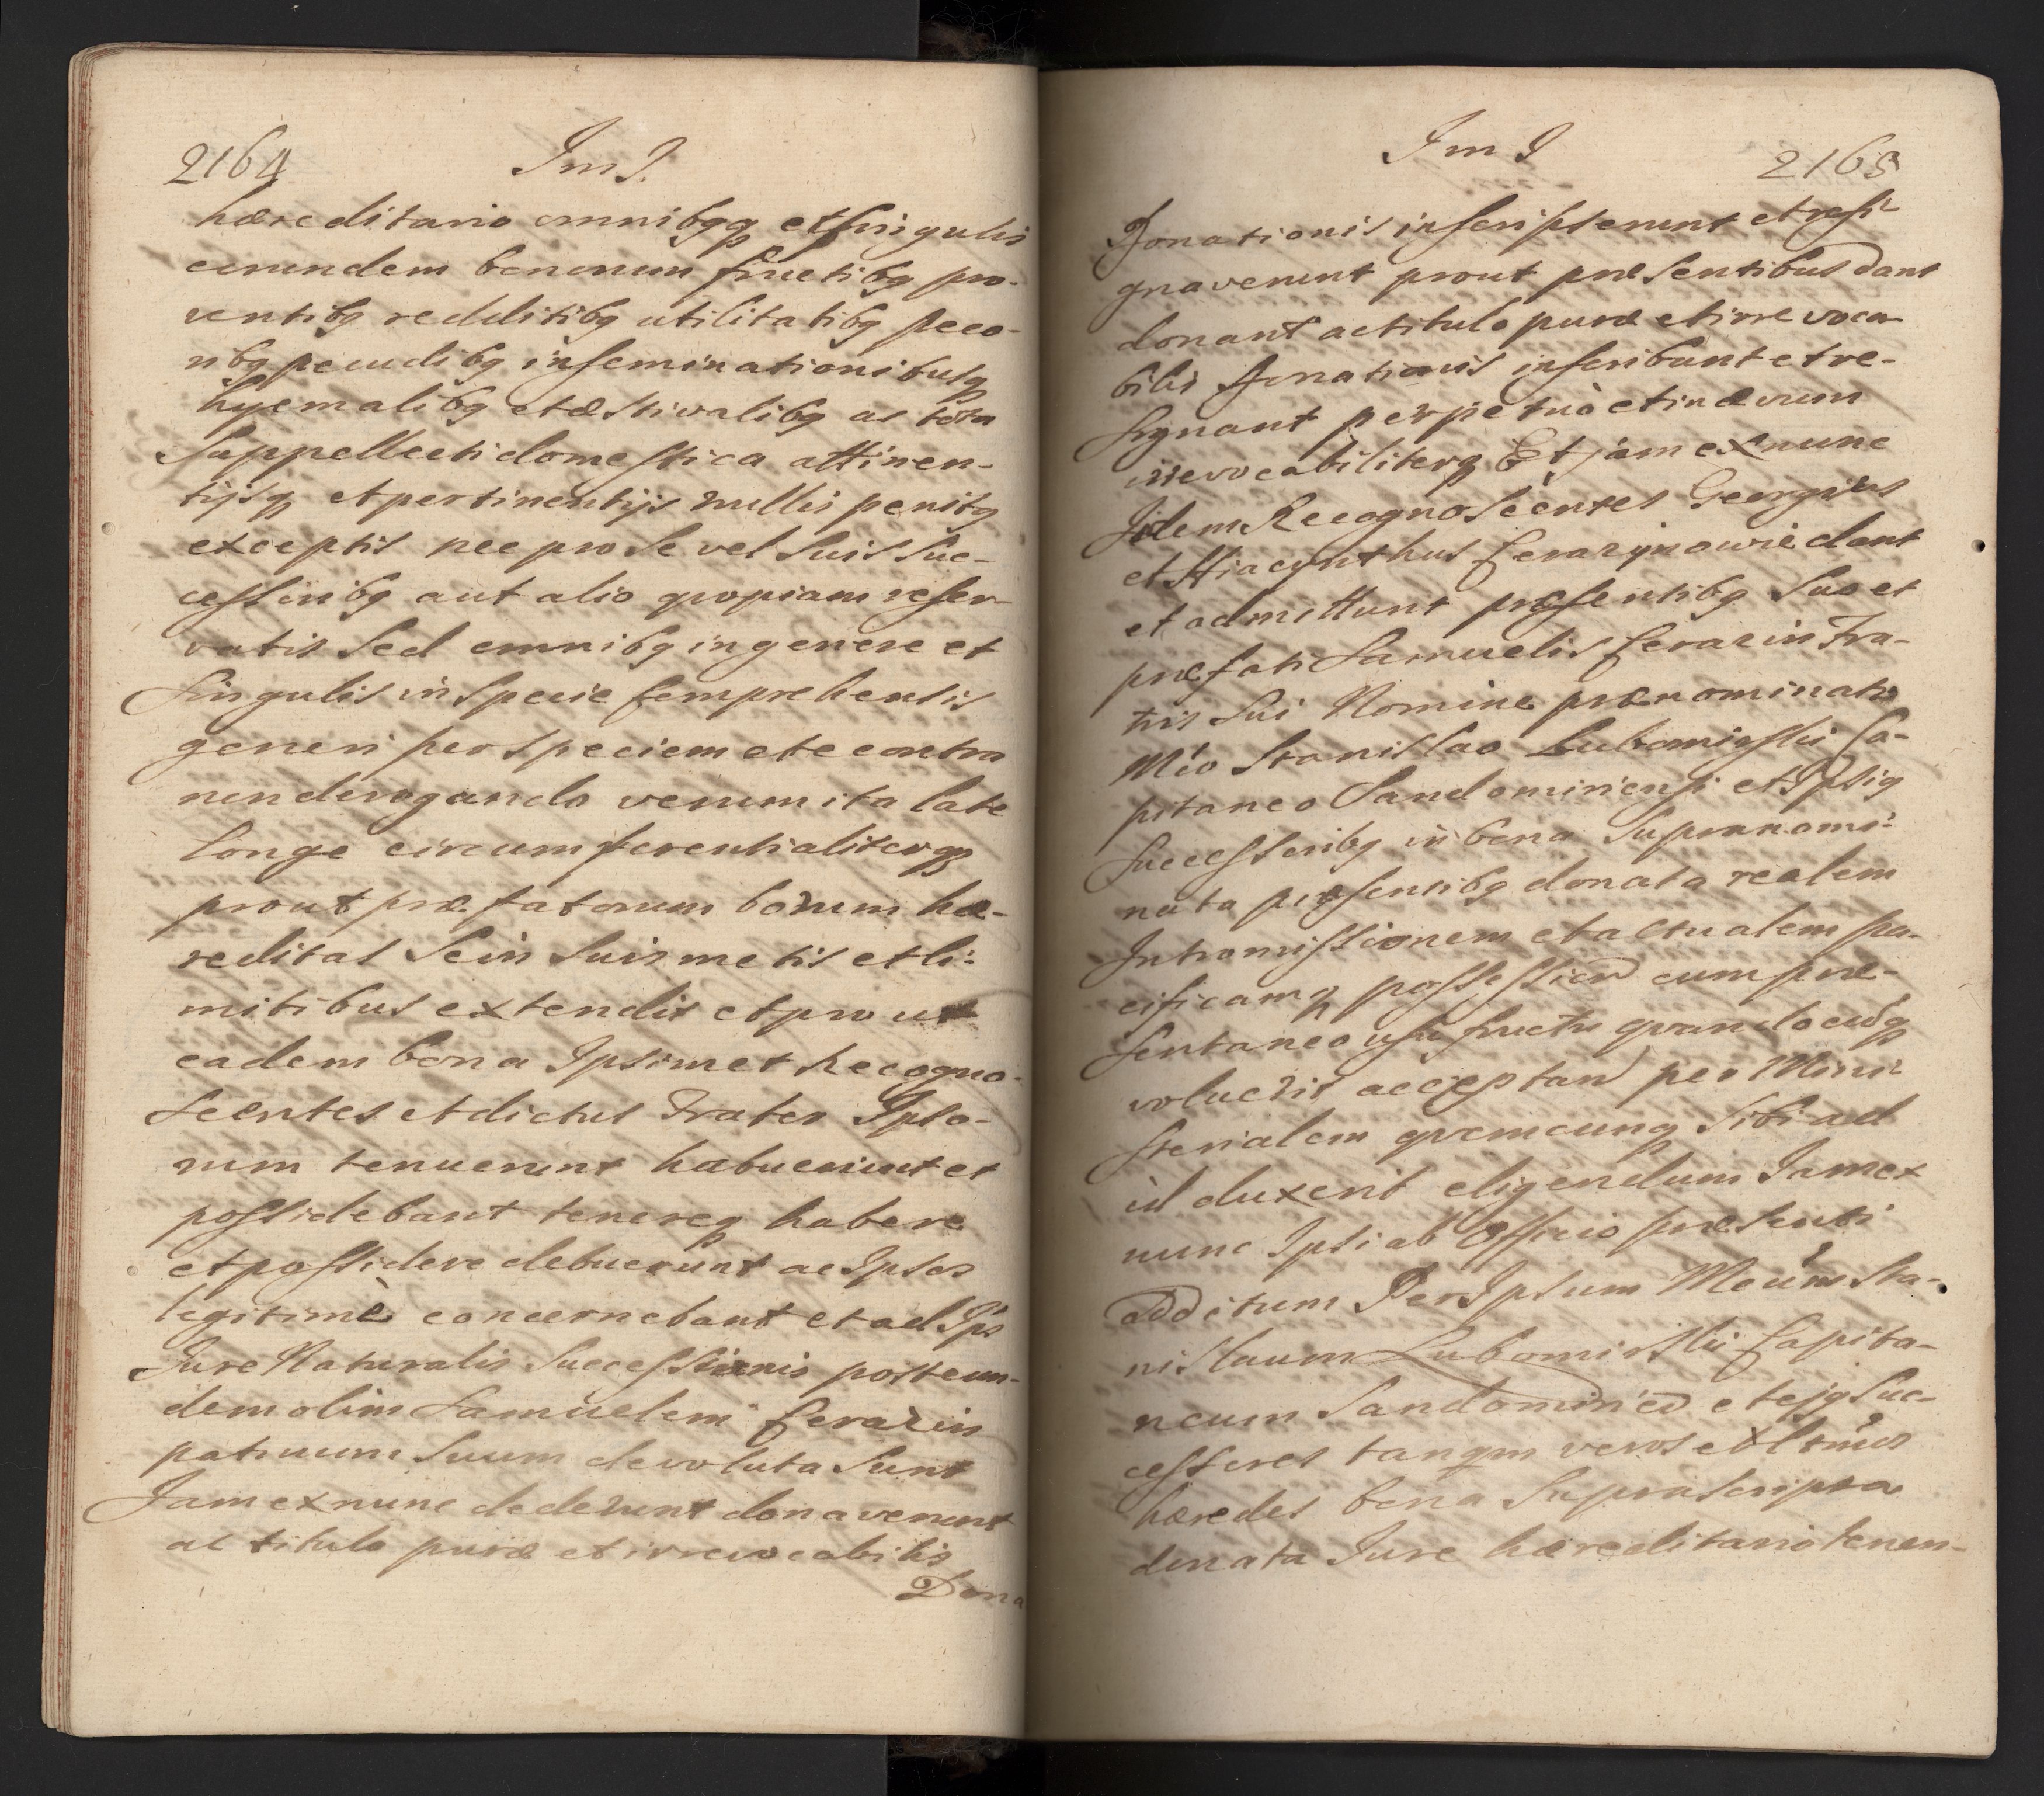 2164
Im I.
hæreditario omnibqq et singulis
eorundem bonorum fructibq pro-
ventibq redditibq utilitatibq peco-
ribq pecudibq inseminationibusq
hyemalibq et æstivalibq ac tota
Suppellecti domestica attinen-
tijsq et pertinentijs nullis penitq
exceptis nec pro se vel suis suc-
cessoribq aut alio qvopiam reser-
vatis sed omnibq in genere et
singulis in specie comprehensis
generi per speciem et e contra
non derogando verum ita late
longe circumferentialiterqq
prout præfatorum bonum hæ-
reditas se in suis metis et li-
mitibus extendit et prout
eadem bona Ipsimet Recogno-
scentes et dictus Frater Ipso-
rum tenuerunt habuerunt et
possidebant tenereq habere
et possidere debuerunt ac Ipsos
legitimè concernebant et ad Ips
Jure Naturalis Successionis post eun-
dem olim Samuelem Cerazin
patruum suum devoluta sunt
Jam ex nunc dederunt donaverunt
ac titulo puræ et irrevocabilis
Dona
Im I
2165
Donationis inscripserunt et resi-
gnaverunt prout præsentibus dant
donant ac titulo puræ et irrevoca-
bilis Donationis inscribunt et re-
signant perpetuò et in ævum
irrevocabiliterq Et jam ex nunc
Idem Recognoscentes Georgius
et Hiacynthus Cerazynowie dant
et admittunt præsentibq suo et
præfati Samuelis Cerazin Fra-
tris sui Nomine prænominato
Mco Stanislao Lubomirski Ca-
pitaneo Sandomiriensi et Ipsiq
Successoribq in bona supranomi-
nata præsentibq donata realem
Intromissionem et actualem pa-
cificamq possession cum præ-
sentaneo usu fructu qvandocunq
voluerit acceptan per Mini-
sterialem qvemcunq sibi ad
id duxerit eligendum Jam ex
nunc Ipsi ab Officio præsenti
additum Per Ipsum Mcum Sta-
nislaum Lubomirski Capita-
neum Sandomirien et ejq Suc-
cessores tanqm veros et ltimos
hæredes bona suprascripta
donata Jure hæreditario tenen-